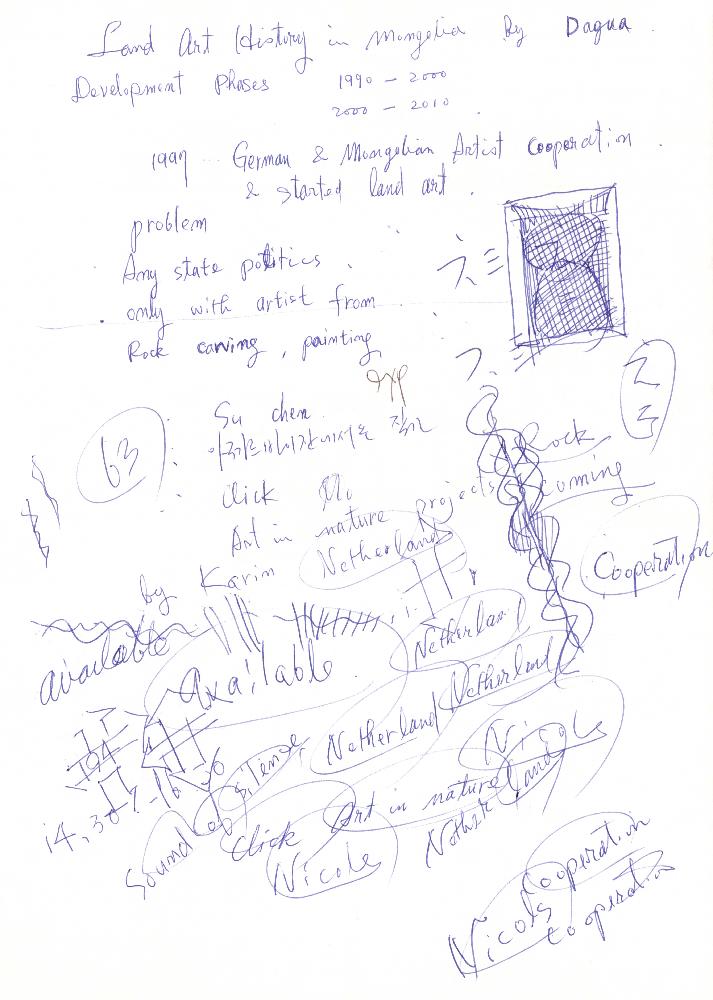 Land Art History in Mongolia By Dagva
Development Phases 1990 - 2000
2000 - 2010
1997 German & Mongolian Artist cooperation.
& started land art.
problem
Any state politics
only with artist from
Rock carving, painting
exp
63
Su chen
Rock
click
coming
Art in nature projects
Netherland
Cooperation
by Karin
available
Available
Netherland
Netherland
Netherland
Nicole
14,30
Sound of Silence
Click Art in nature
Netherland
Nicole
Cooperation
Nicols
Cooperation